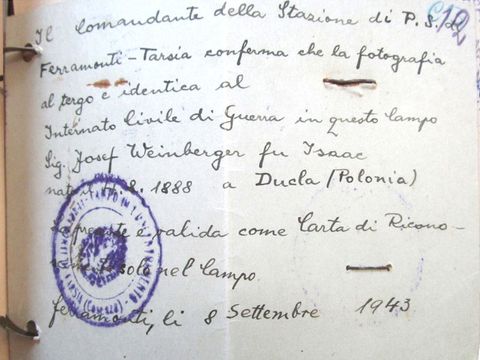 Il Comandante della Stazione di P.S. di
Ferramonti-Tarsia conferma che la fotografia
al tergo è identica al
Internato Civile di Guerra in questo Campo
Sig. Josef Weinberger fu Isaac
nato il 1888 a Ducla (Polonia)
è valida come Carta di Ricono-
solo nel Campo.
Ferramonti, li 8 Settembre 1943